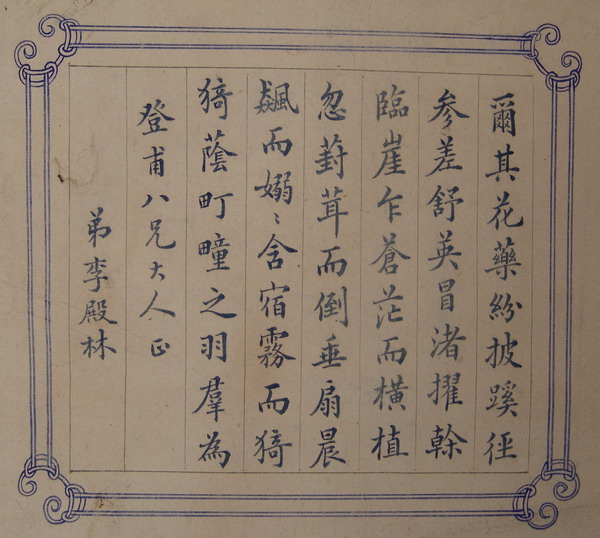 爾其花藥紛披蹊徑
参差舒英冒渚擢榦
臨崖乍蒼茫而橫植
忽葑茸而倒垂扇晨
飆而嫋〻含宿霧而猗
猗蔭町疃之羽羣為
登甫八兄大人正
弟李殿林